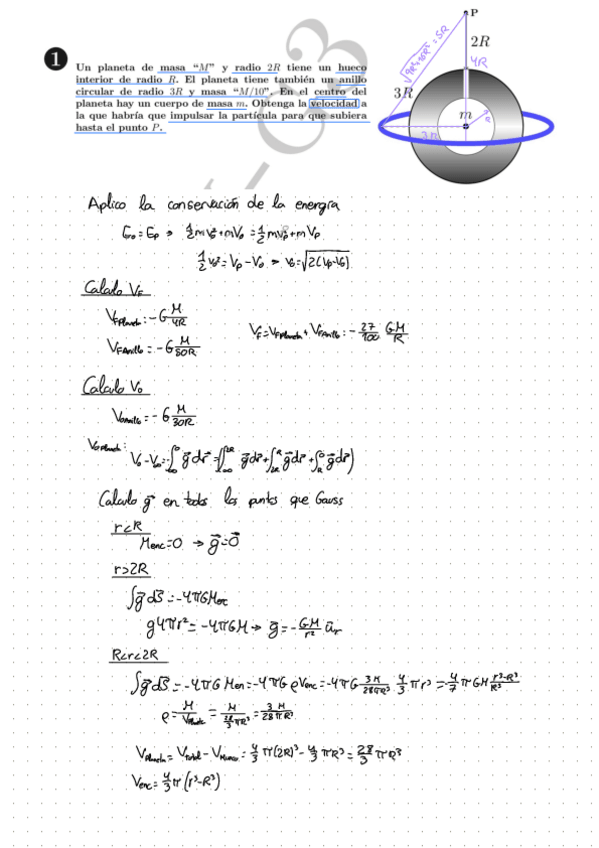 1
Un planeta de masa “M” y radio 2R tiene un hueco
interior de radio R. El planeta tiene también un anillo
circular de radio 3R y masa “M/10”. En el centro del
planeta hay un cuerpo de masa m. Obtenga la velocidad a
la que habría que impulsar la partícula para que subiera
hasta el punto P.
P
2R
4R
√9R²+16R² = 5R
3R
m
R
3R
Aplico la conservación de la energía
E₀ = Ep → 1/2 mv₀² + mV₀ = 1/2 mvp² + mVp
1/2 v₀² = Vp - V₀ → v₀ = √2(Vp-V₀)
Calculo VF
VFPlaneta = -G M/4R
VFAnillo = -G M/50R
VF = VFPlaneta + VFAnillo = - 27/100 GM/R
Calculo V₀
V₀Anillo = -G M/30R
V₀Planeta:
V₀ - V∞ = -∫∞⁰ g⃗ dr⃗ = -(∫∞²ᴿ g⃗ dr⃗ + ∫₂ᴿᴿ g⃗ dr⃗ + ∫ᴿ⁰ g⃗ dr⃗)
Calculo g⃗ en todos los puntos que Gauss
r<R
Menc = 0 → g⃗ = 0⃗
r>2R
∫g⃗ dS⃗ = -4πGMenc
g4πr² = -4πGM → g⃗ = - GM/r² u⃗r
R<r<2R
∫g⃗ dS⃗ = -4πG Men = -4πG ρVenc = -4πG 3M/28πR³ 4/3 πr³ = -4/7 πGM r³-R³/R³
ρ = M/VPlaneta = M/28/3 πR³ = 3M/28πR³
VPlaneta = VTotal - VHueco = 4/3 π(2R)³ - 4/3 πR³ = 28/3 πR³
Venc = 4/3 π(r³-R³)